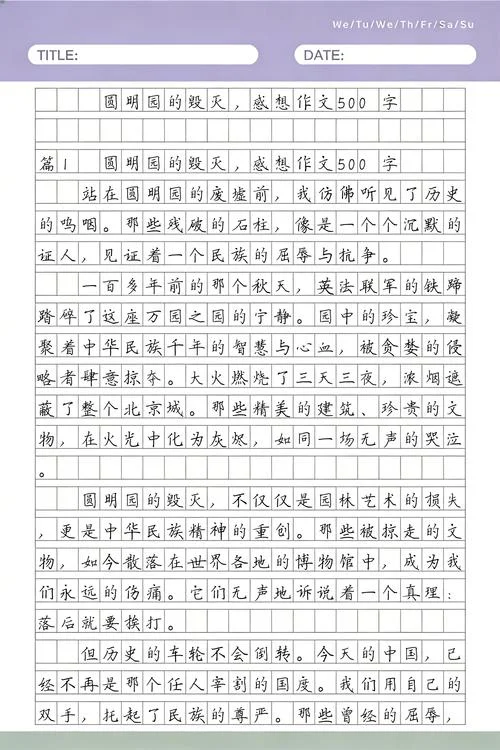 We/Tu/We/Th/Fr/Sa/Su
TITLE:
DATE:
圆明园的毁灭，感想作文500 字
篇1 圆明园的毁灭，感想作文500 字
站在圆明园的废墟前，我仿佛听见了历史
的呜咽。那些残破的石柱，像是一个个沉默的
证人，见证着一个民族的屈辱与抗争。
一百多年前的那个秋天，英法联军的铁蹄
踏碎了这座万园之园的宁静。园中的珍宝，凝
聚着中华民族千年的智慧与心血，被贪婪的侵
略者肆意掠夺。大火燃烧了三天三夜，浓烟遮
蔽了整个北京城。那些精美的建筑、珍贵的文
物，在火光中化为灰烬，如同一场无声的哭泣
。
圆明园的毁灭，不仅仅是园林艺术的损失
，更是中华民族精神的重创。那些被掠走的文
物，如今散落在世界各地的博物馆中，成为我
们永远的伤痛。它们无声地诉说着一个真理：
落后就要挨打。
但历史的车轮不会倒转。今天的中国，已
经不再是那个任人宰割的国度。我们用自己的
双手，托起了民族的尊严。那些曾经的屈辱，